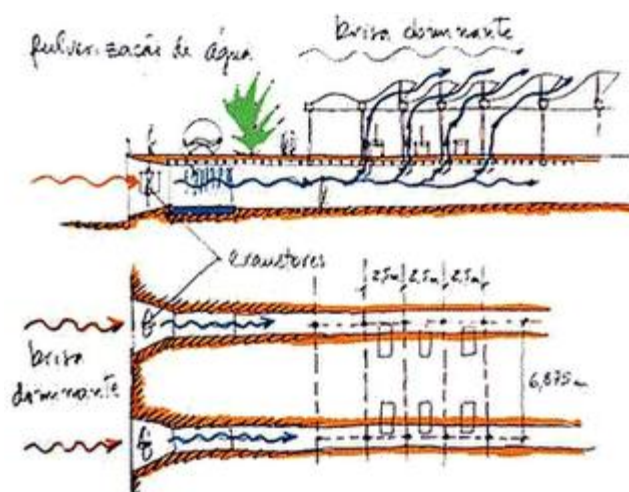 pulverização de água
brisa dominante
exaustores
2,5m 2,5m 2,5m
brisa
dominante
6,875m